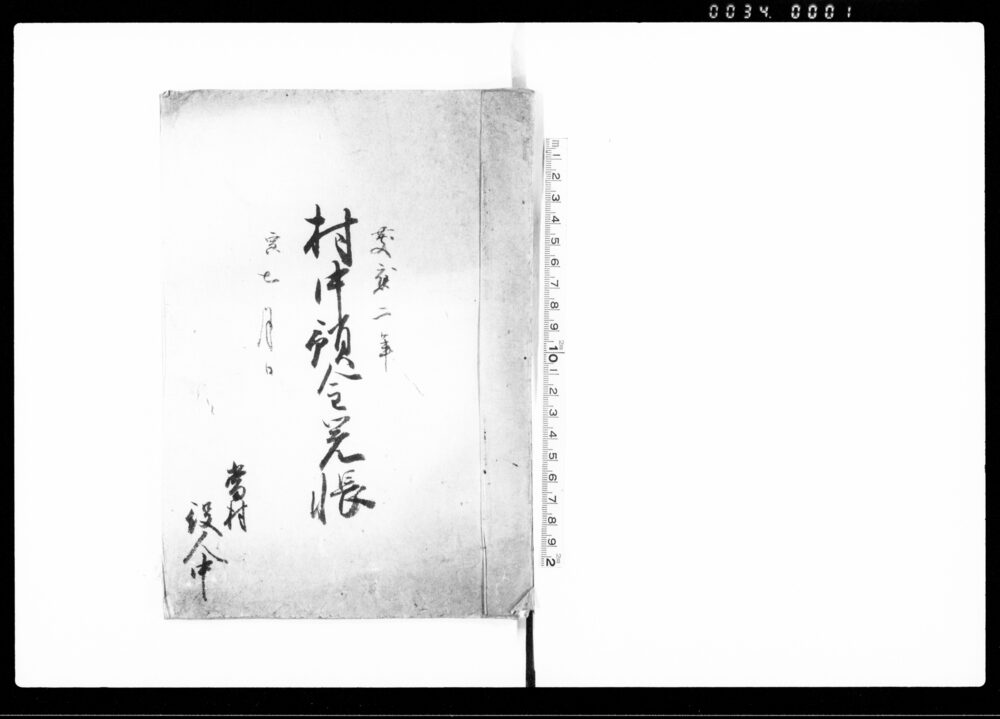 0034 0001
慶應二年
村中覚帳
寅七月日
當村
役人中
1 2 3 4 5 6 7 8 9 10 1 2 3 4 5 6 7 8 9 2